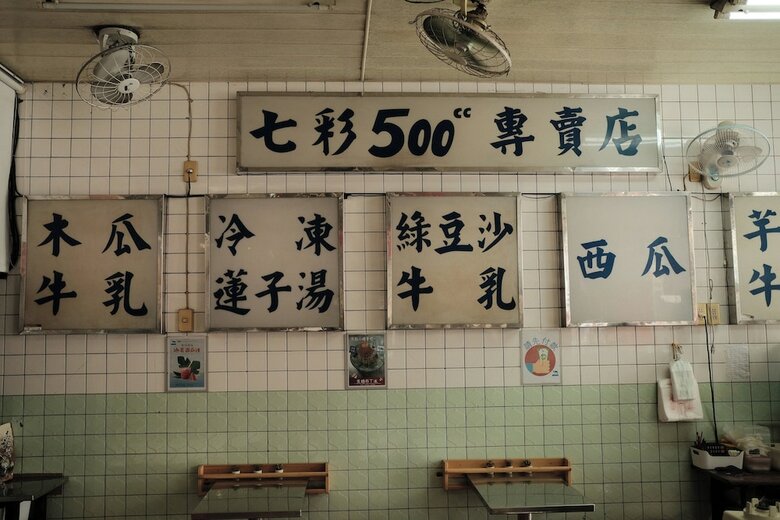 七彩500cc專賣店
木瓜
牛乳
冷凍
蓮子湯
綠豆沙
牛乳
西瓜
芋
牛